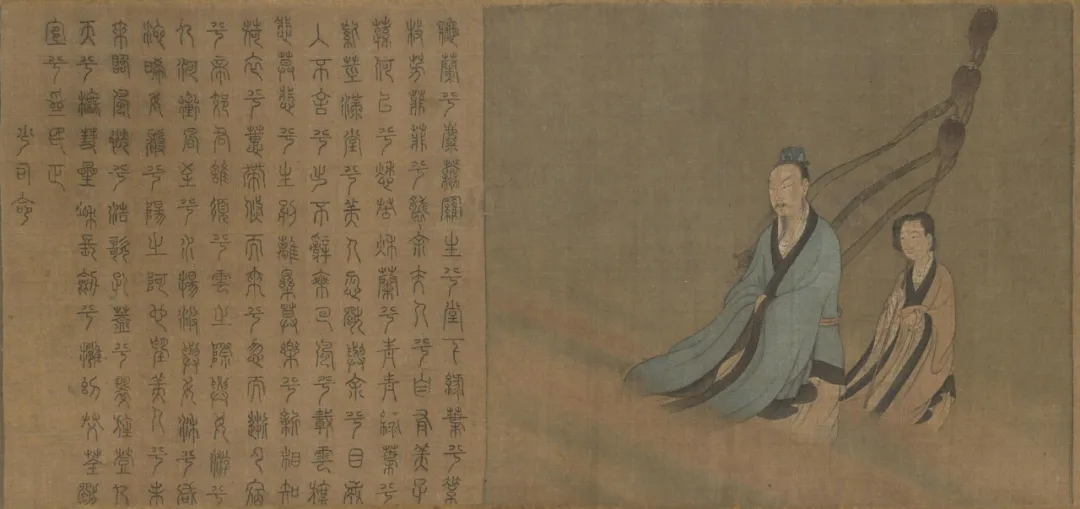 秋蘭兮麋蕪羅生兮堂下綠葉兮素
枝芳菲菲兮襲余夫人兮自有美子
蓀何以兮愁苦秋蘭兮青青綠葉兮
紫莖滿堂兮美人忽獨與余兮目成
入不言兮出不辭乘回風兮載雲旗
悲莫悲兮生別離樂莫樂兮新相知
荷衣兮蕙帶儵而來兮忽而逝夕宿
兮帝郊君誰須兮雲之際與女游兮
九河衝風至兮水揚波與女沐兮咸
池晞女髮兮陽之阿望美人兮未
來臨風怳兮浩歌孔蓋兮翠旌登九
天兮撫彗星竦長劍兮擁幼艾荃獨
宜兮為民正
少司命